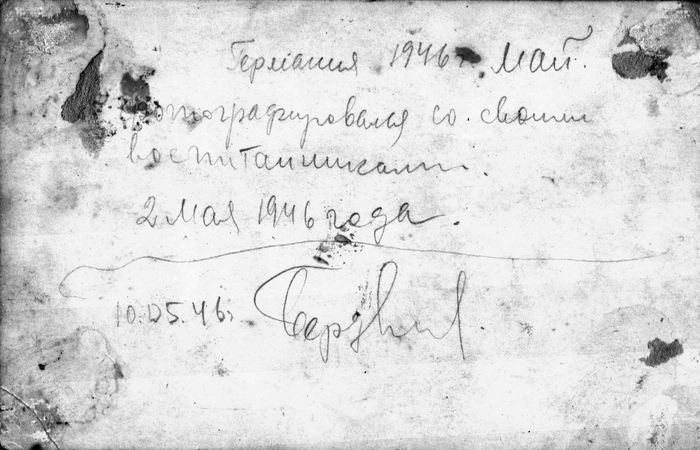 Германия 1946 г. Май.
Фотографировался со своими
воспитанниками.
2 мая 1946 года.
10.05.46г.